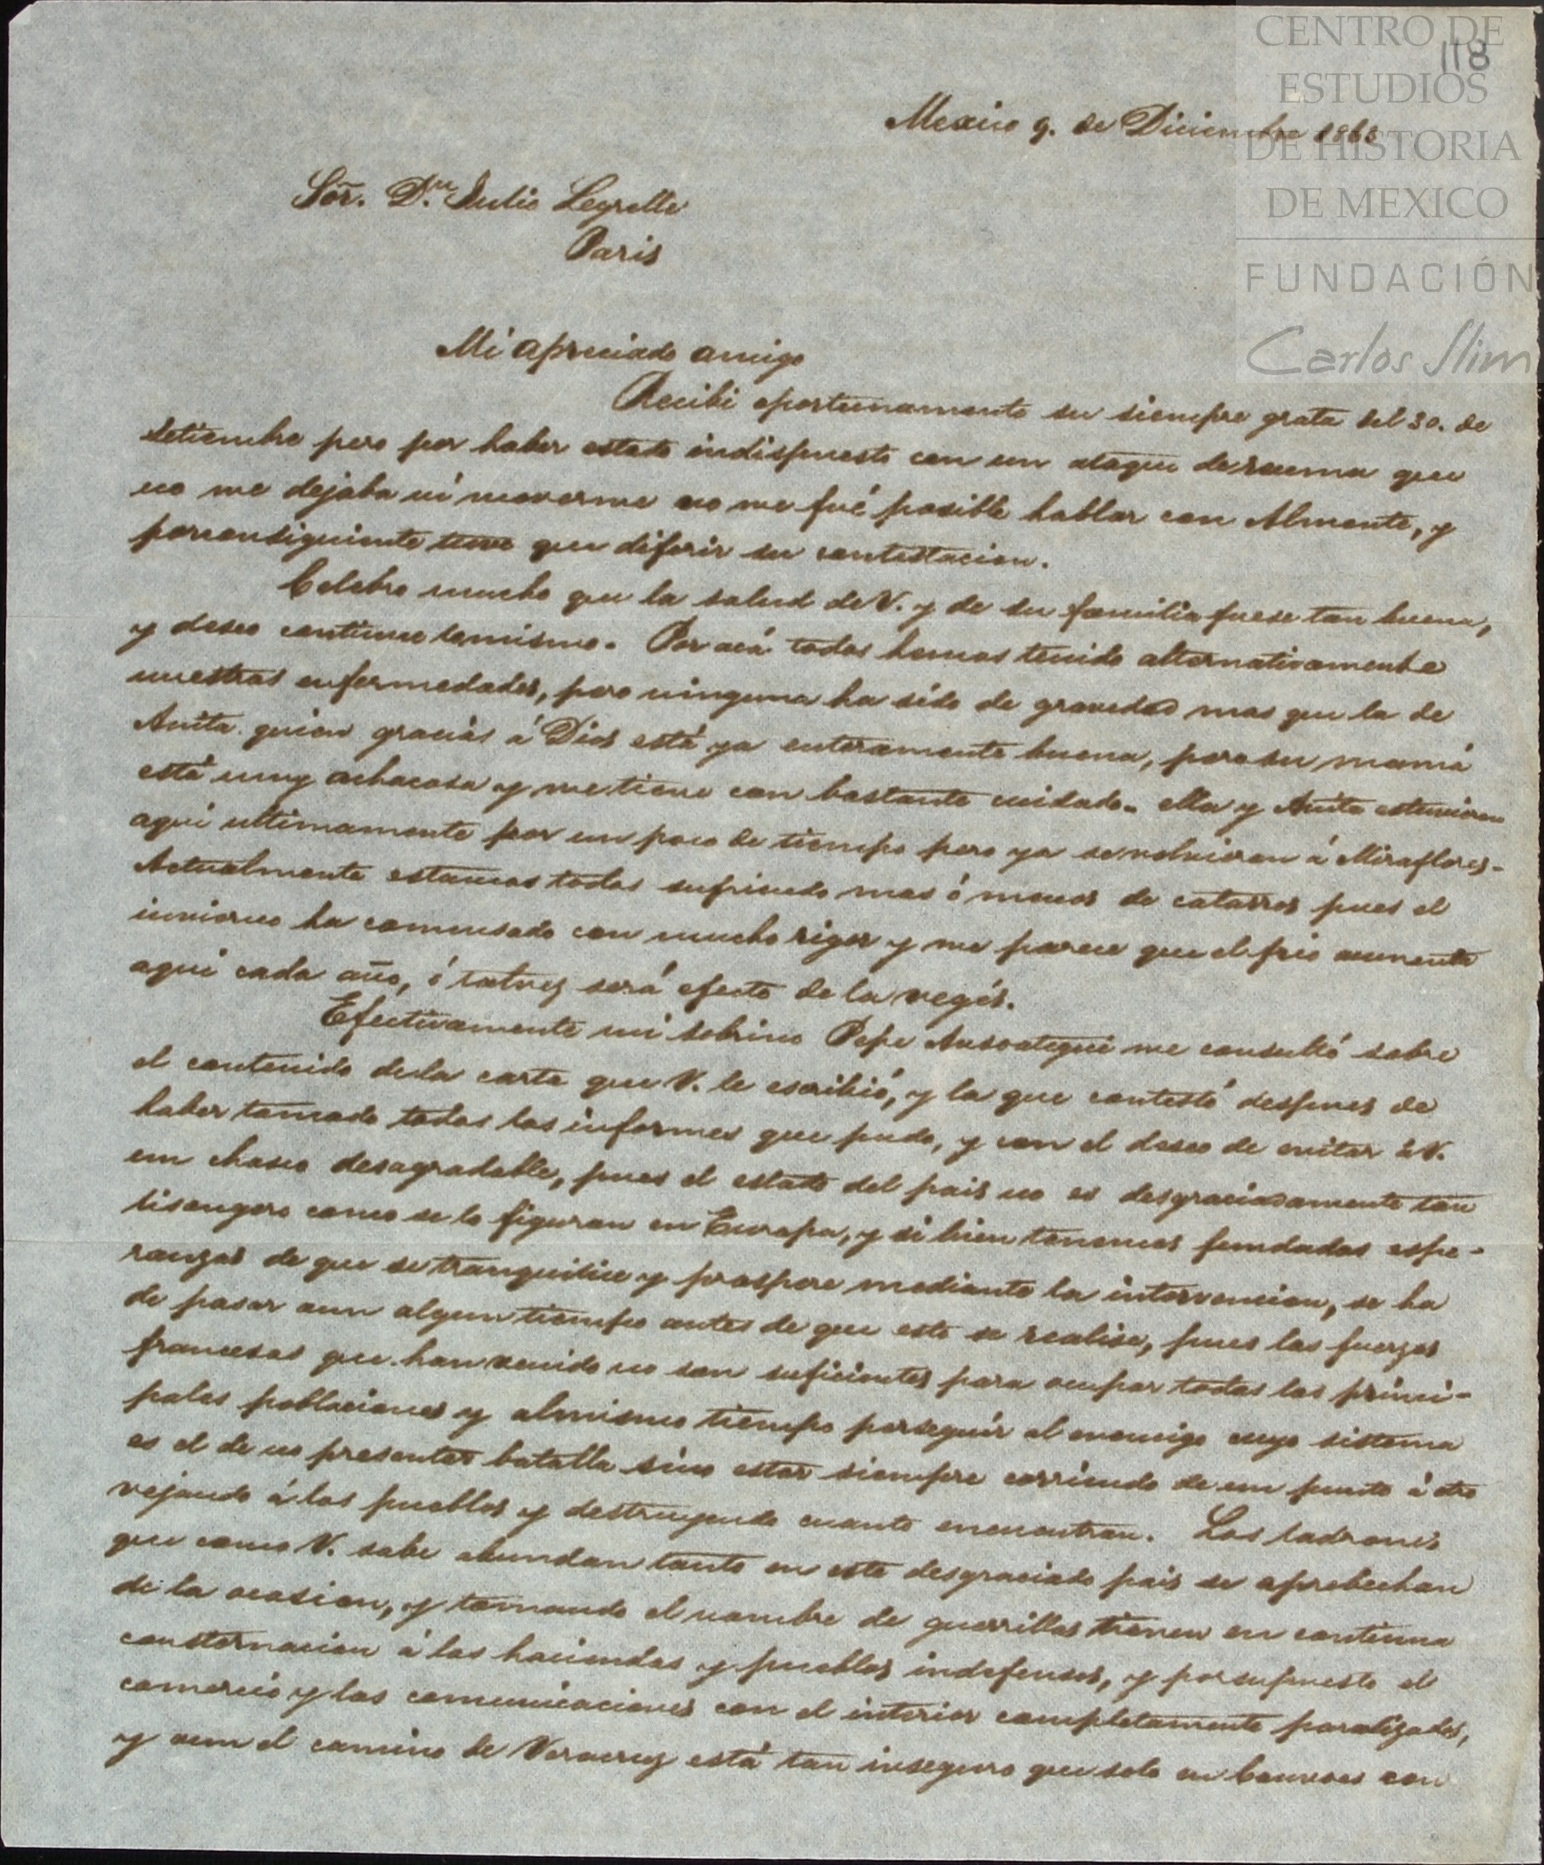 CENTRO DE
ESTUDIOS
DE HISTORIA
DE MEXICO
FUNDACIÓN
Carlos Slim
118
Mexico 9. de Diciembre 1863
Sõr. D.n Julio Legrette
Paris
Mi apreciado amigo
Recibi oportunamente su siempre grata del 30. de
Setiembre pero por haber estado indispuesto con un ataque de reuma que
no me dejaba ni moverme no me fué posible hablar con Almonte, y
porconsiguiente tuve que diferir su contestacion.
Celebro mucho que la salud de V. y de su familia fuese tan buena,
y deseo continue lomismo. Por acá todos hemos tenido alternativamente
nuestras enfermedades, pero ninguna ha sido de gravedad mas que la de
Anita quien gracias á Dios está ya enteramente buena, pero su mamá
está muy achacosa y me tiene con bastante cuidado. ella y Anita estuvieron
aquí ultimamente por un poco de tiempo pero ya se volvieron á Miraflores.
Actualmente estamos todos sufriendo mas ó menos de catarros pues el
invierno ha comensado con mucho rigor y me parece que el frio aumenta
aquí cada año, ó talvez será efecto de la vegés.
Efectivamente mi sobrino Pepe Ansoategui me consultó sobre
el contenido dela carta que V. le escribió, y la que contestó despues de
haber tomado todos los informes que pudo, y con el deseo de evitar á V.
un chasco desagradable, pues el estado del pais no es desgraciadamente tan
lisongero como se lo figuran en Europa, y si bien tenemos fundadas espe-
ranzas de que se tranquilice y prospere mediante la intervencion, se ha
de pasar aun algun tiempo antes de que esto se realise, pues las fuerzas
francesas que han venido no son suficientes para ocupar todas las princi-
pales poblaciones y almismo tiempo perseguir al enemigo cuyo sistema
es el de no presentar batalla sino estar siempre corriendo de un punto á otro
vejando á los pueblos y destruyendo cuanto encuentran. Los ladrones
que como V. sabe abundan tanto en este desgraciado pais se aprobechan
de la ocasion, y tomando el nombre de guerrillas tienen en continua
consternacion á las haciendas y pueblos indefensos, y porsupuesto el
comercio y las comunicaciones con el interior completamente paralizados,
y aun el camino de Veracruz está tan inseguro que solo en Convoes con